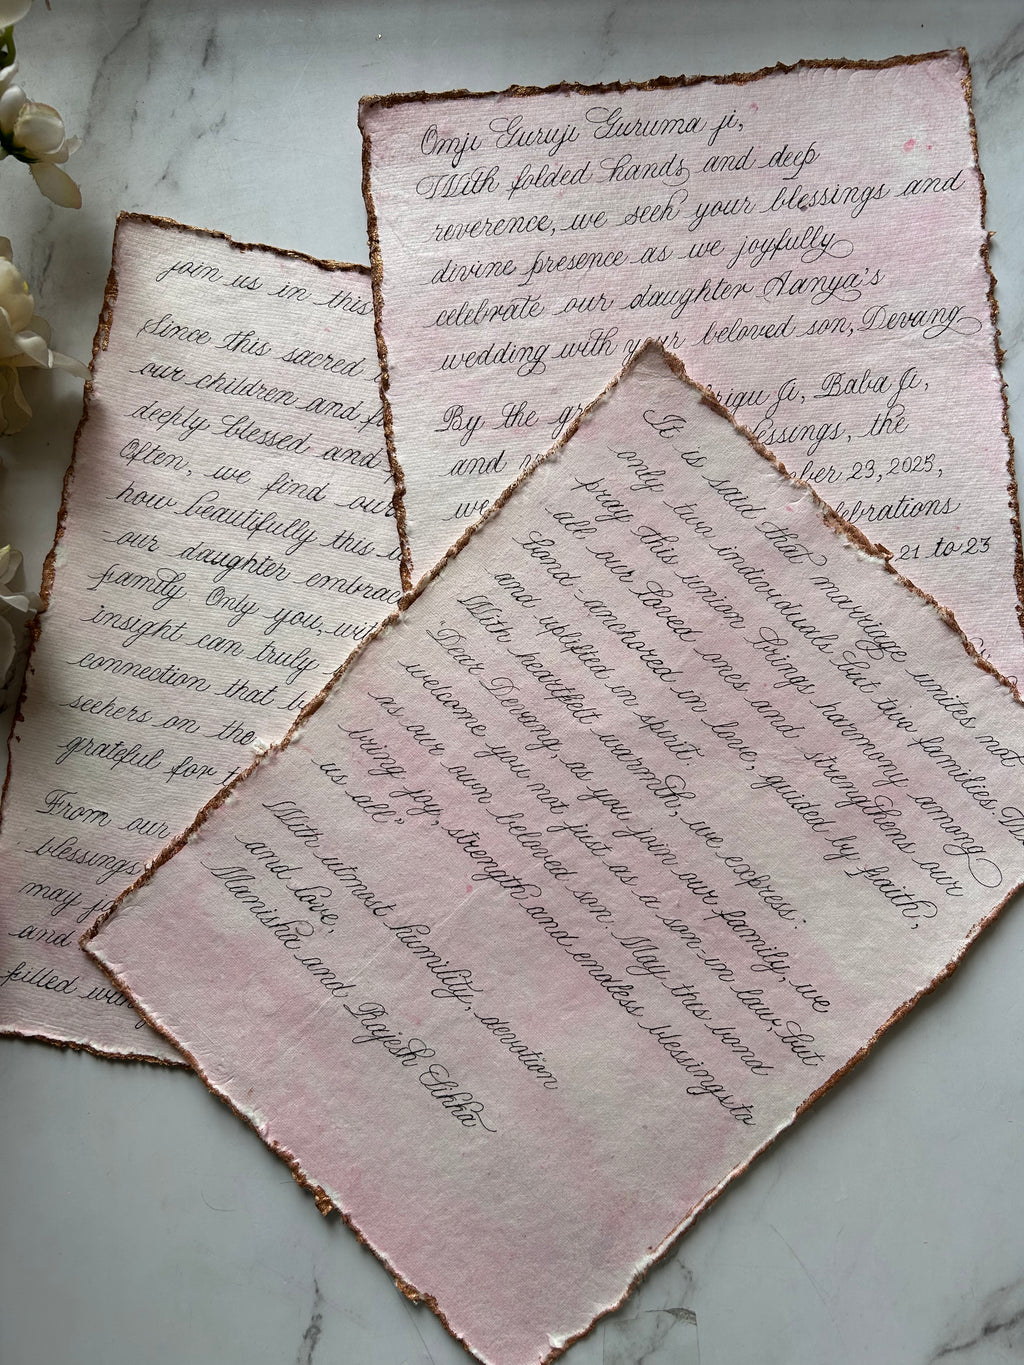 Omji Guruji Guruma ji,
With folded hands and deep
reverence, we seek your blessings and
divine presence as we joyfully
celebrate our daughter Aanya's
wedding with your beloved son, Devang
By the Ji, Baba Ji,
and blessings, the
23, 2025,
we celebrations
21 to 23
join us in this
Since this sacred
our children and
deeply blessed and
Often, we find our
how beautifully this
-our daughter embrac
family Only you, with
insight can truly
connection that
seekers on the
grateful for
From our
blessings
may
and
filled with
It is said that marriage unites not
only two individuals but two families
pray this union brings harmony among
all our loved ones and strengthens our
bond-anchored in love, guided by faith,
and uplifted in spirit.
With heartfelt warmth, we express:
"Dear Devang, as you join our family, we
welcome you not just as a son-in law, but
as our own beloved son. May this bond
bring joy, strength and endless blessings to
us all"
With utmost humility, devotion
and love,
Manisha and Rajesh Sikka